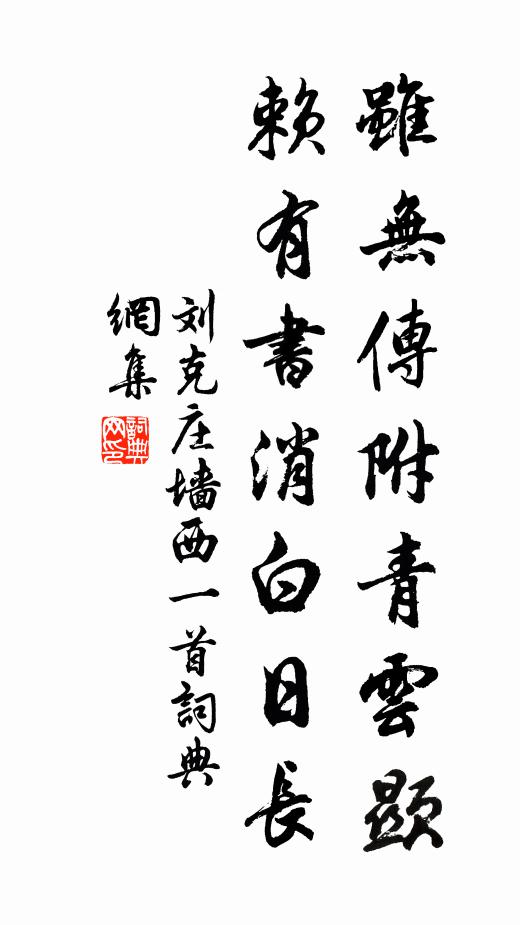 雖無傳附青雲顯
賴有書消白日長
刘克庄墙西一首詞典
網集
詞典網印